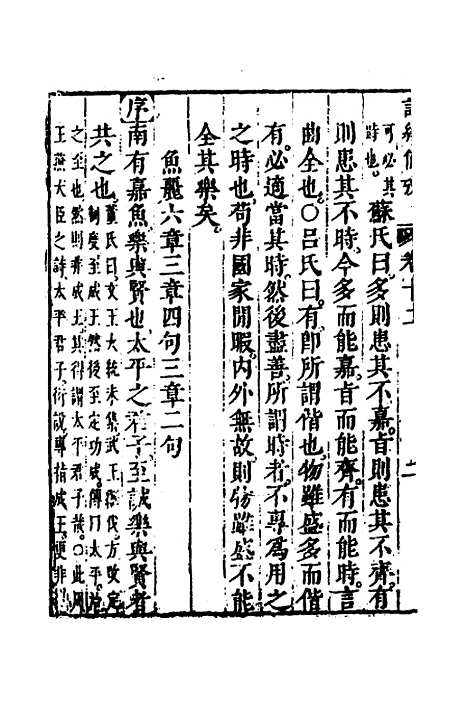 詩經備攷 卷十二 二
可必其時也蘇氏曰多則患其不嘉㫖則患其不齊有
則患其不時今多而能嘉㫖而能齊有而能時言
曲全也〇呂氏曰有卽所謂偕也物雖盛多而偕
有必適當其時然後盡善所謂時者不專爲用之
之時也苟非國家閒暇内外無故則物雖盛不能
全其樂矣
魚麗六章三章四句三章二句
序南有嘉魚樂與賢也太平之君子至誠樂與賢者
共之也董氏曰文王大統未集武王燕伐方改定
制度至成王然後至定功成傳曰太平
之至也然則非成王其得謂太平君子哉〇此
王燕大臣之詩太平君子衍說專指成王便非